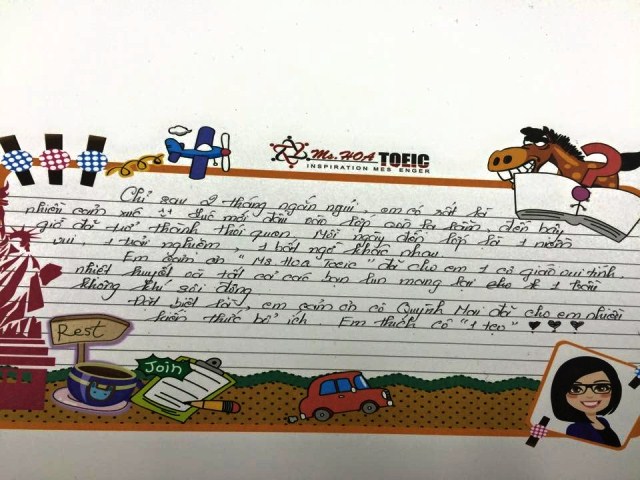 Ms. HOA TOEIC
INSPIRATION MES ENGER
Chỉ sau 2 tháng ngắn ngủi em có rất là
nhiều cảm xúc :) Lúc mới đầu vào lớp còn la lắm, đến bây
giờ đã trở thành thói quen. Mỗi ngày đến lớp là 1 niềm
vui 1 trải nghiệm 1 bất ngờ khác nhau.
Em cảm ơn "Ms Hoa Toeic" đã cho em 1 cô giáo vui tính,
nhiệt huyết và tất cả các bạn lun mang lại cho 1 bầu
không khí sôi động
Đặt biệt là, em cảm ơn cô Quỳnh Mai đã cho em nhiều
kiến thức bổ ích. Em thích cô "1 tẹo" ♥ ♥ ♥
Rest
Join
?